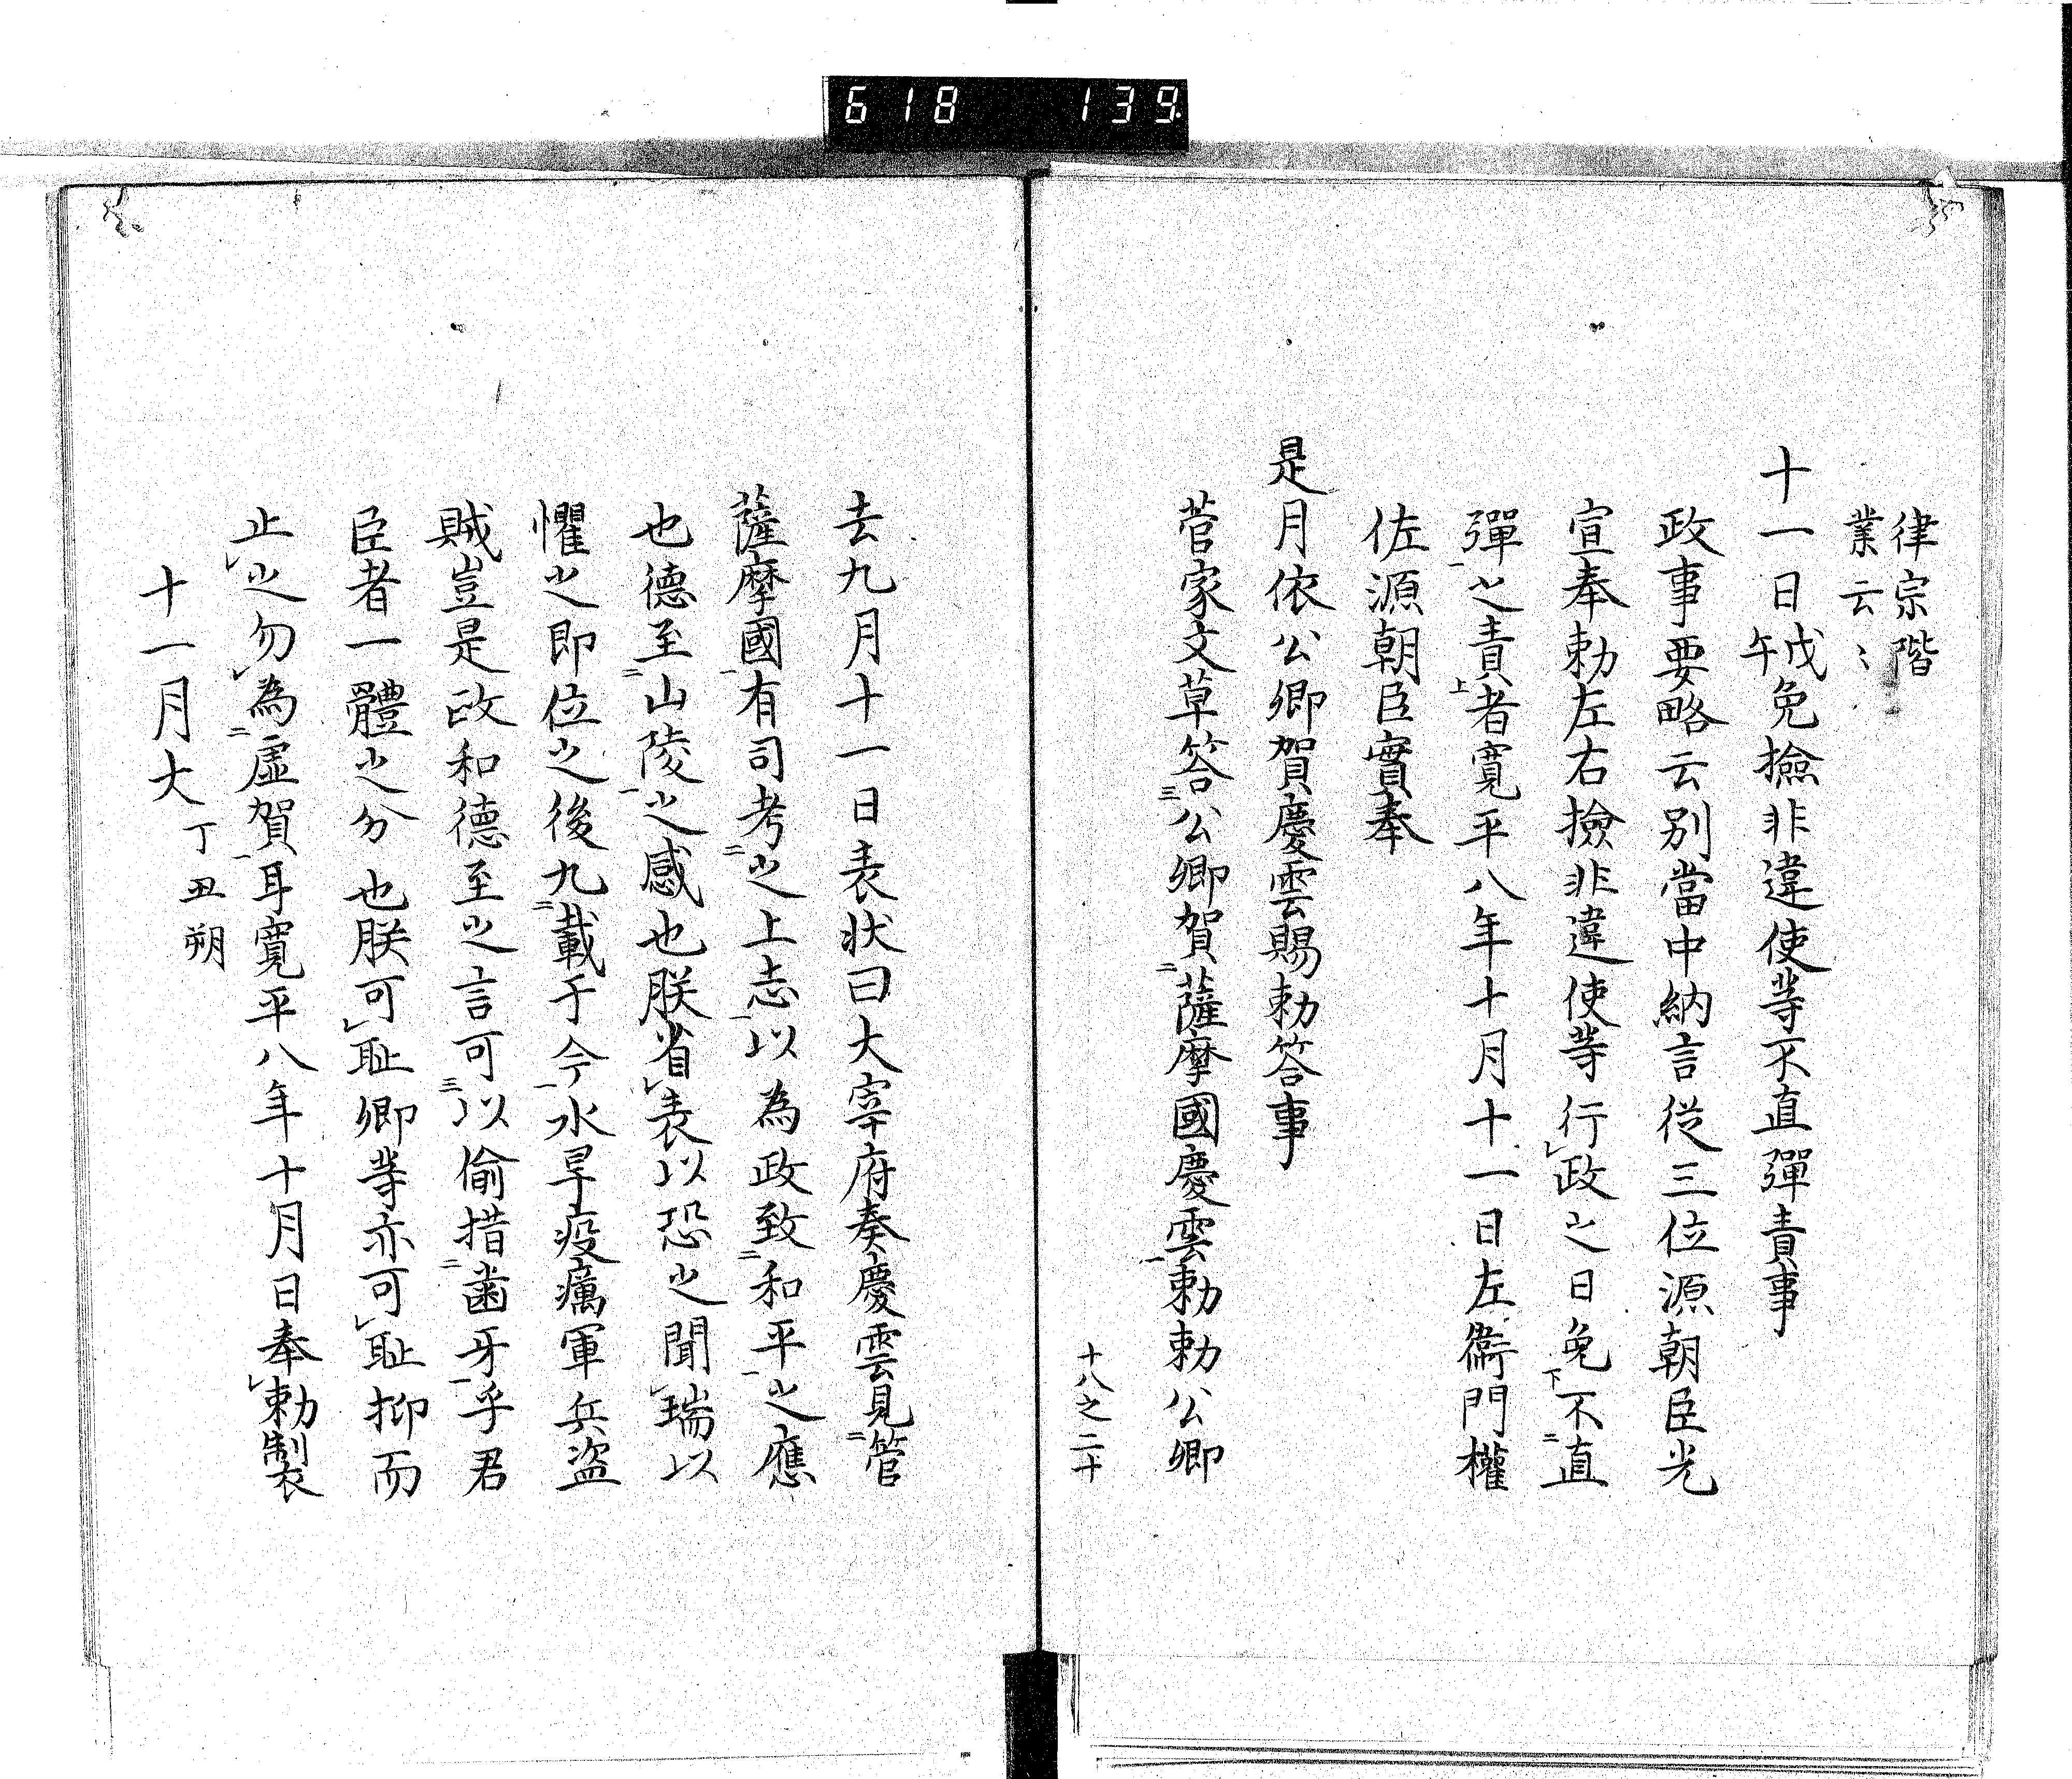 618 139
律宗階
業云〻
十一日戊午免撿非違使等不直彈責事
政事要略云别當中納言從三位源朝臣光
宣奉勅左右撿非違使等行レ政之日免下不二直
彈一之責上者寛平八年十月十一日左衛門權
佐源朝臣實奉
是月依公卿賀慶雲賜勅答事
菅家文草答三公卿賀二薩摩國慶雲一勅勅公卿
十八之二十
去九月十一日表状曰大宰府奏慶雲見二管
薩摩國一有司考二之上志一以為政致二和平一之應
也德至二山陵一之感也朕省レ表以恐之聞レ瑞以
懼之即位之後九二載于今一水旱疫癘軍兵盗
賊豈是政和德至之言可三以偷措二歯牙一乎君
臣者一體之分也朕可レ耻卿等亦可レ耻抑而
止レ之勿レ為二虚賀一耳寛平八年十月日奉レ勅製
十一月大丁丑朔